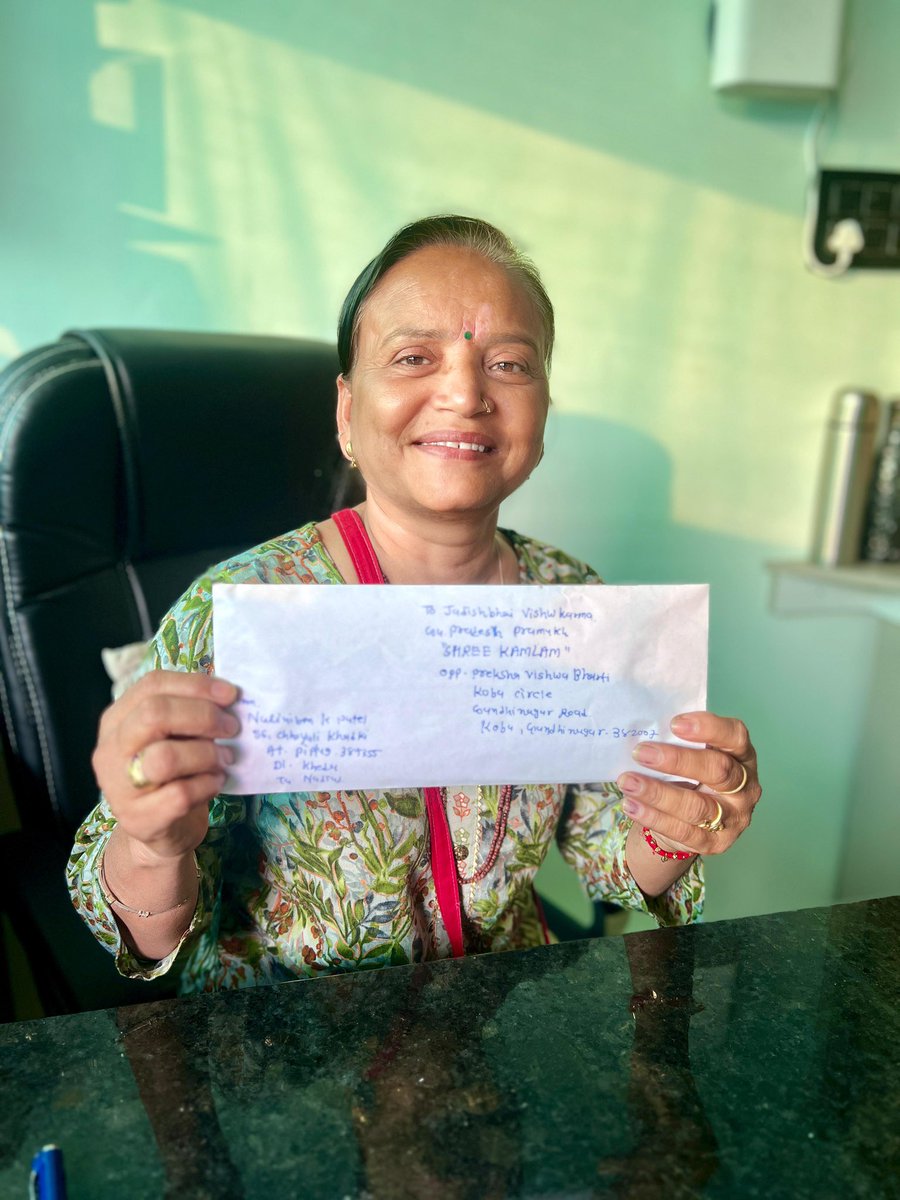 To Jadishbhai Vishwkarma
Guj. pradesh pramukh
"SHREE KAMLAM"
opp. preksha vishwa Bharti
Koba circle
Gandhinagar Road
Koba, Gandhinagar. 382007
Naliniben k patel
Khadki
At. piplag. 387355
Di. Kheda
Ta Nadiad